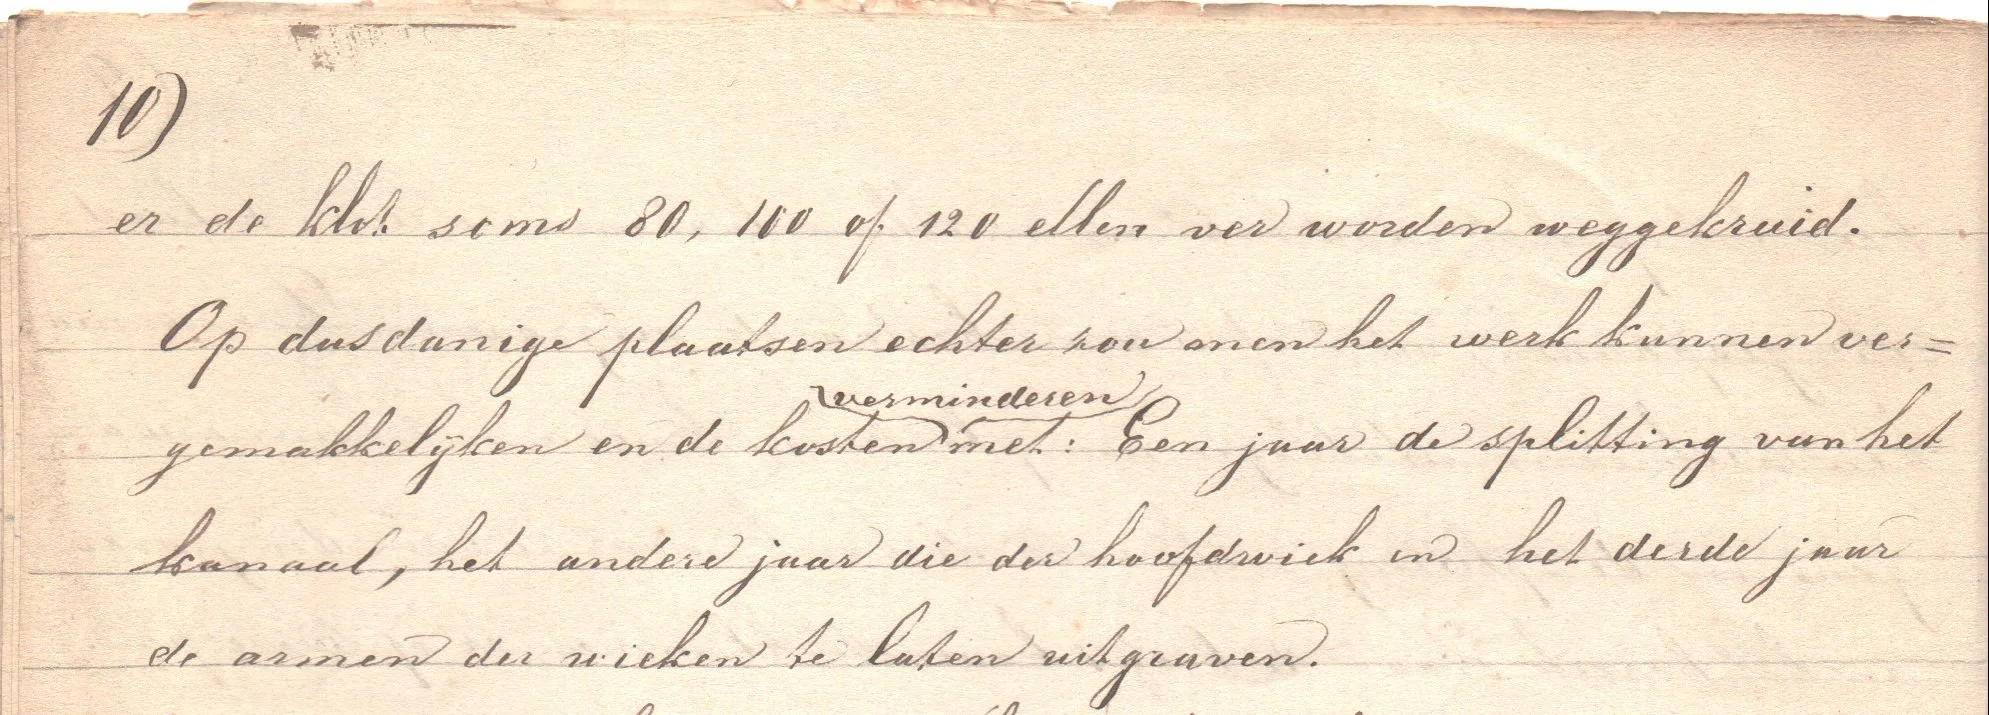 10)
er de klot soms 80, 100 of 120 ellen ver worden weggekruid.
Op dusdanige plaatsen echter zou men het werk kunnen ver=
verminderen
gemakkelijken en de kosten met: Een jaar de splitting van het
kanaal, het andere jaar die der hoofdwiek en het derde jaar
de armen der wieken te laten uitgraven.